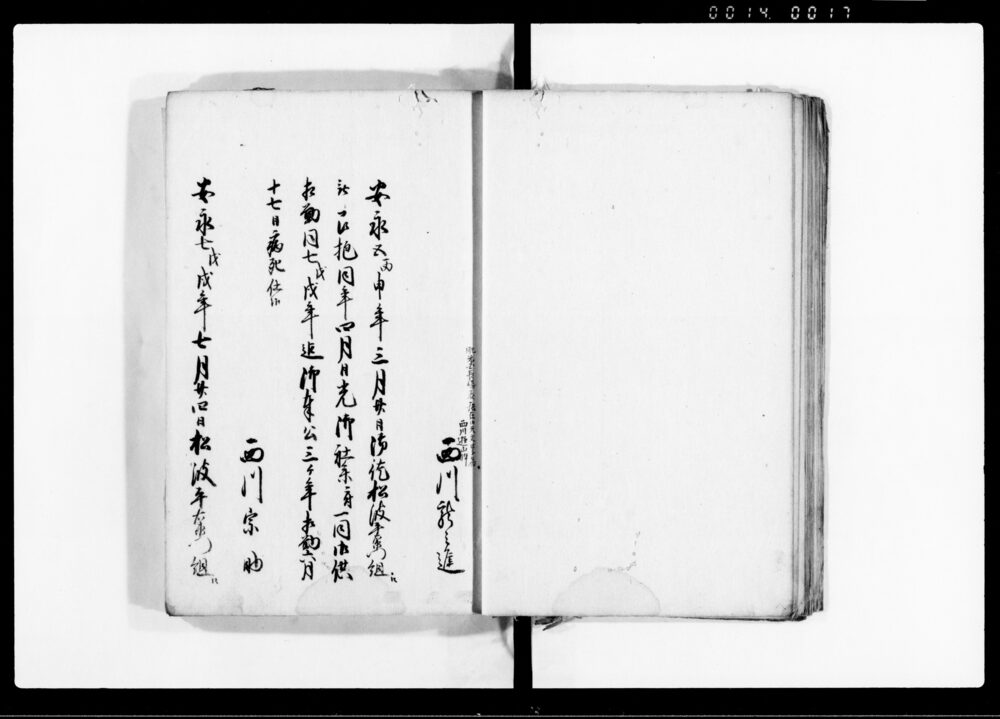 0014 0017
西川
安永五丙申年三月廿日御徒松波平右衛門組江
被召抱同年四月日光御社参之節一同御供
相勤同七戊戌年迄御奉公三ヶ年相勤六月
十七日病死仕候
西川宗助
安永七戊戌年七月廿四日松波平右衛門組江